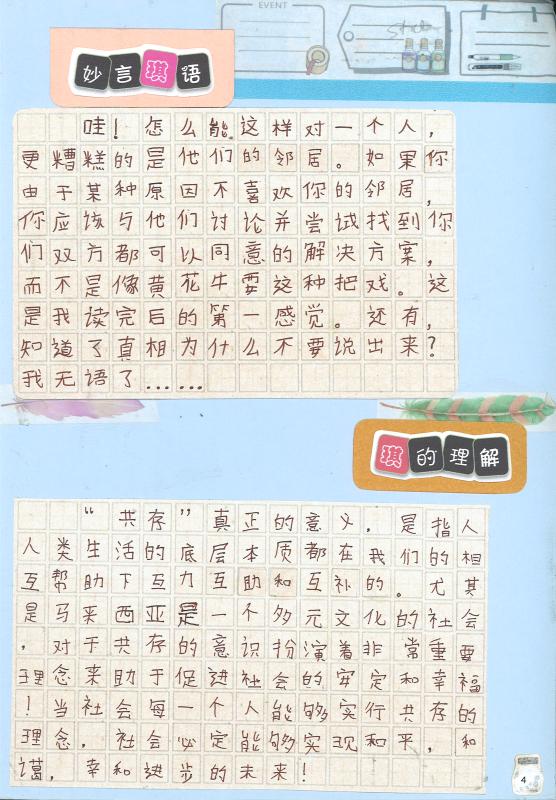 EVENT
妙言琪语
哇！怎么能这样对一个人，
更糟糕的是他们的邻居。如果你
由于某种原因不喜欢你的邻居，
你应该与他们讨论并尝试找到你
们双方都可以同意的解决方案，
而不是像黄花牛耍这种把戏。这
是我读完后的第一感觉。还有，
知道了真相为什么不要说出来？
我无语了……
琪的理解
“共存”真正的意义，是指人
人类生活的底层本质都在我们的相
互帮助下互力互助和互补的。尤其
是马来西亚是一个多元文化的社会
，对于共存的意识扮演着非常重要
理念来助于促进社会的安定和幸福
！当社会每一个人能够实行共存的
理念，社会必定能够实现和平，和
谒，幸和进步的未来！
4